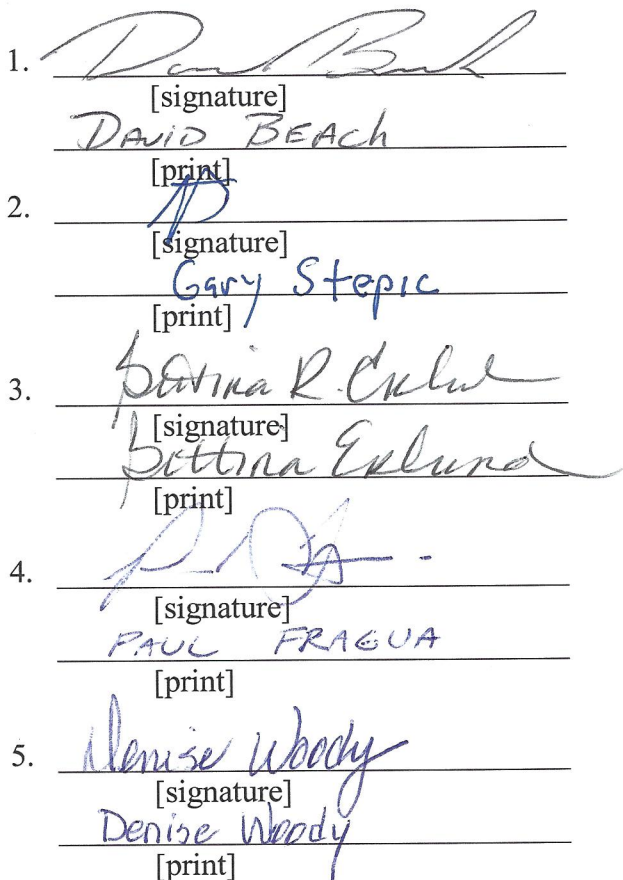 1.
[signature]
DAVID BEACh
[print]
2.
[signature]
Gary Stepic
[print]
3. Bettina R. Eklund
[signature]
Bettina Eklund
[print]
4.
[signature]
PAUL FRAGUA
[print]
5. Denise Woody
[signature]
Denise Woody
[print]